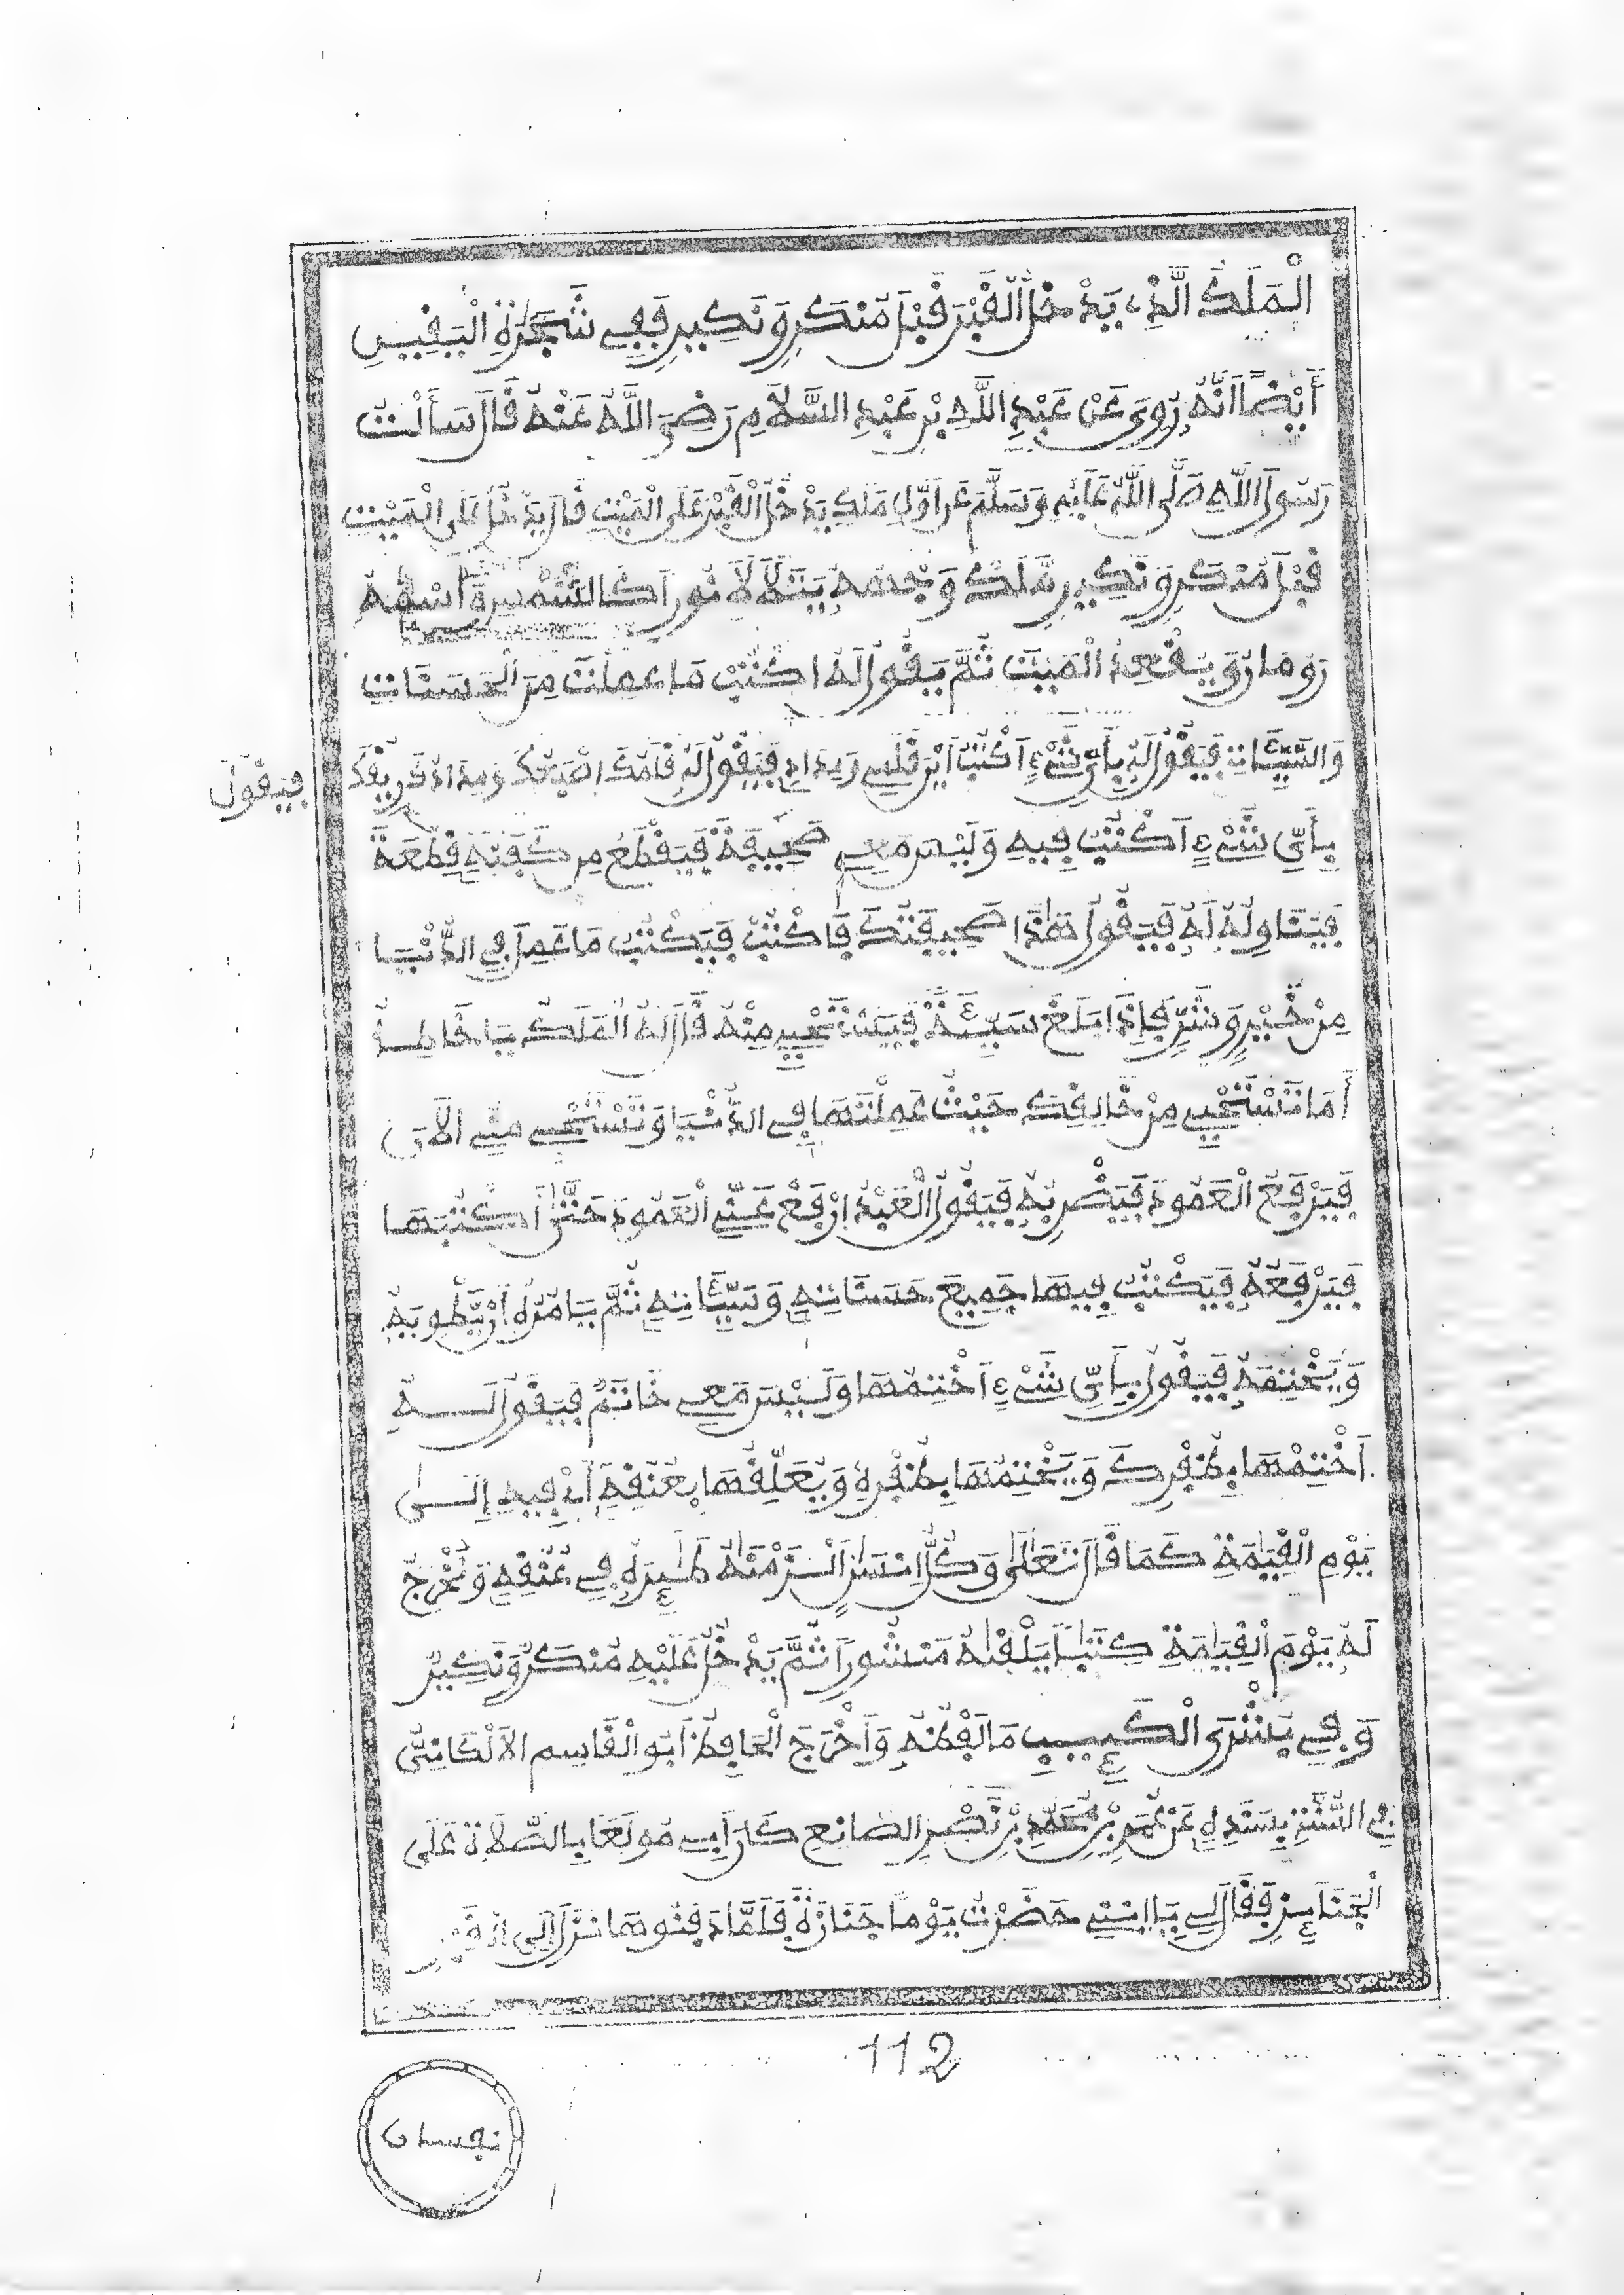 الْمَلَكُ الَّذِي يَدْخُلُ الْقَبْرَ قَبْلَ مُنْكَرٍ وَنَكِيرٍ فَفِي شَجَرَةِ الْيَقِينِ
أَيْضًا أَنَّهُ رُوِيَ عَنْ عَبْدِ اللَّهِ بْنِ عَبْدِ السَّلَامِ رَضِيَ اللَّهُ عَنْهُ قَالَ سَأَلْتُ
رَسُولَ اللَّهِ صَلَّى اللَّهُ عَلَيْهِ وَسَلَّمَ عَنْ أَوَّلِ مَلَكٍ يَدْخُلُ الْقَبْرَ عَلَى الْمَيِّتِ قَالَ يَدْخُلُ عَلَى الْمَيِّتِ
قَبْلَ مُنْكَرٍ وَنَكِيرٍ مَلَكٌ وَجْهُهُ يَتَلَأْلَأُ نُورًا كَالشَّمْسِ اسْمُهُ
رُومَانُ وَيُقْعِدُ الْمَيِّتَ ثُمَّ يَقُولُ لَهُ اكْتُبْ مَا عَمِلْتَ مِنَ الْحَسَنَاتِ
وَالسَّيِّئَاتِ فَيَقُولُ لَهُ بِأَيِّ شَيْءٍ أَكْتُبُ أَيْنَ قَلَمِي وَمِدَادِي فَيَقُولُ لَهُ قَلَمُكَ إِصْبَعُكَ وَمِدَادُكَ رِيقُكَ فَيَقُولُ
بِأَيِّ شَيْءٍ أَكْتُبُ فِيهِ وَلَيْسَ مَعِي صَحِيفَةٌ فَيَقْطَعُ مِنْ كَفَنِهِ قِطْعَةً
فَيُنَاوِلُهُ لَهُ فَيَقُولُ هَذَا صَحِيفَتُكَ فَاكْتُبْ فَيَكْتُبُ مَا عَمِلَ فِي الدُّنْيَا
مِنْ خَيْرٍ وَشَرٍّ فَإِذَا بَلَغَ سَيِّئَةً فَيَسْتَحْيِي مِنْهُ قَالَ لَهُ الْمَلَكُ يَا خَاطِئُ
أَمَا تَسْتَحْيِي مِنْ خَالِقِكَ حَيْثُ عَمِلْتَهَا فِي الدُّنْيَا وَتَسْتَحْيِي مِنِّي الْآنَ
فَيَرْفَعُ الْعَمُودَ فَيَضْرِبُهُ فَيَقُولُ الْعَبْدُ ارْفَعْ عَنِّي الْعَمُودَ حَتَّى أَكْتُبَهَا
فَيَرْفَعُهُ فَيَكْتُبُ فِيهَا جَمِيعَ حَسَنَاتِهِ وَسَيِّئَاتِهِ ثُمَّ يَأْمُرُهُ أَنْ يَطْوِيَهُ
وَيَخْتِمَهُ فَيَقُولُ بِأَيِّ شَيْءٍ أَخْتِمُهَا وَلَيْسَ مَعِي خَاتَمٌ فَيَقُولُ لَهُ
اخْتِمْهَا بِظُفْرِكَ وَيَخْتِمُهَا بِظُفْرِهِ وَيُعَلِّقُهَا بِعُنُقِهِ أَيْ فِيهِ إِلَى
يَوْمِ الْقِيَمَةِ كَمَا قَالَ تَعَالَى وَكُلَّ إِنْسَانٍ أَلْزَمْنَاهُ طَائِرَهُ فِي عُنُقِهِ وَنُخْرِجُ
لَهُ يَوْمَ الْقِيَامَةِ كِتَابًا يَلْقَاهُ مَنْشُورًا ثُمَّ يَدْخُلُ عَلَيْهِ مُنْكَرٌ وَنَكِيرٌ
وَفِي بُشْرَى الْكَئِيبِ مَا لَفْظُهُ وَأَخْرَجَ الْحَافِظُ أَبُو الْقَاسِمِ الْأَلْكَائِيُّ
فِي السُّنَّةِ بِسَنَدِهِ عَنْ مُحَمَّدِ بْنِ نَصْرٍ الصَّائِغِ كَانَ أَبِي مُولَعًا بِالصَّلَاةِ عَلَى
الْجَنَائِزِ فَقَالَ لِي يَا ابْنِي حَضَرْتُ يَوْمًا جَنَازَةً فَلَمَّا دَفَنُوهَا نَزَلَ إِلَى الْقَبْرِ
112